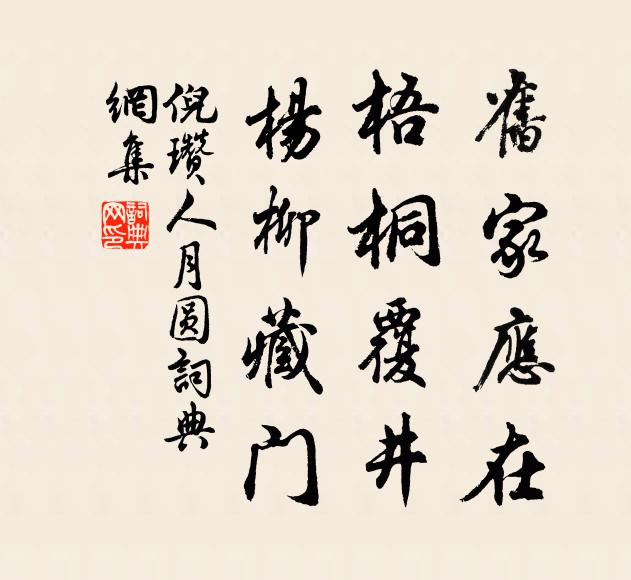 舊家應在
梧桐覆井
楊柳藏门
倪瓚人月圆詞典
網集
詞典網印